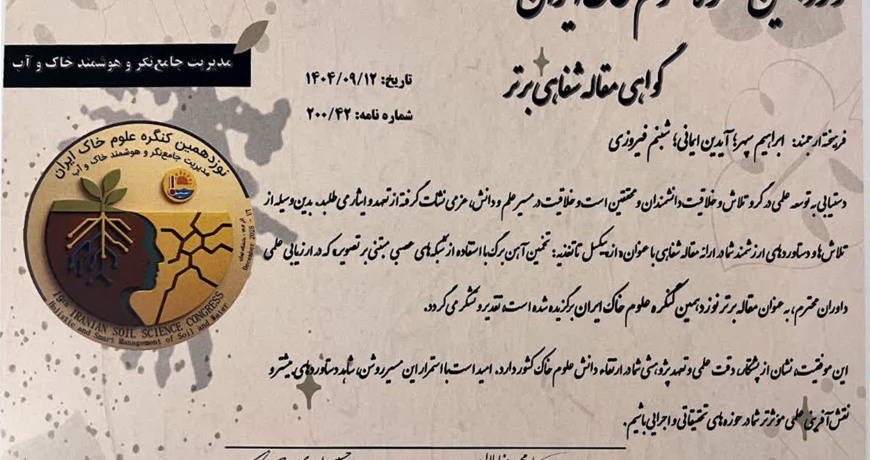 نوزدهمین کنگره علوم خاک ایران
مدیریت جامع‌نگر و هوشمند خاک و آب
گواهی مقاله شفاهی برتر
تاریخ: ۱۴۰۴/۰۹/۱۲
شماره نامه: ۲۰۰/۴۲
فریخته ارجمند: ابراهیم سپهر؛ آیدین ایمانی؛ شبنم فیروزی
نوزدهمین کنگره علوم خاک ایران
مدیریت جامع‌نگر و هوشمند خاک و آب
19th IRANIAN SOIL SCIENCE CONGRESS
Holistic and Smart Management of Soil and Water
دستیابی به توسعه علمی در گرو تلاش و خلاقیت دانشمندان و محققین است و خلاقیت در مسیر علم و دانش، عزمی نشات گرفته از تعهد و ایثار می طلبد. بدین وسیله از
تلاش‌ها و دستاوردهای ارزشمند شما در ارائه مقاله شفاهی با عنوان «از پیکسل تا تغذیه: تخمین آهن برگ با استفاده از شبکه‌های عصبی مبتنی بر تصویر» که در ارزیابی علمی
داوران محترم، به عنوان مقاله برتر نوزدهمین کنگره علوم خاک ایران برگزیده شده است، تقدیر و تشکر می گردد.
این موفقیت، نشان از پشتکار، دقت علمی و تعهد پژوهشی شما در ارتقاء دانش علوم خاک کشور دارد. امید است با استمرار این مسیر روشن، شاهد دستاوردهای بیشتر و
نقش آفرینی علمی مؤثرتر شما در حوزه های تحقیقاتی و اجرایی باشیم.